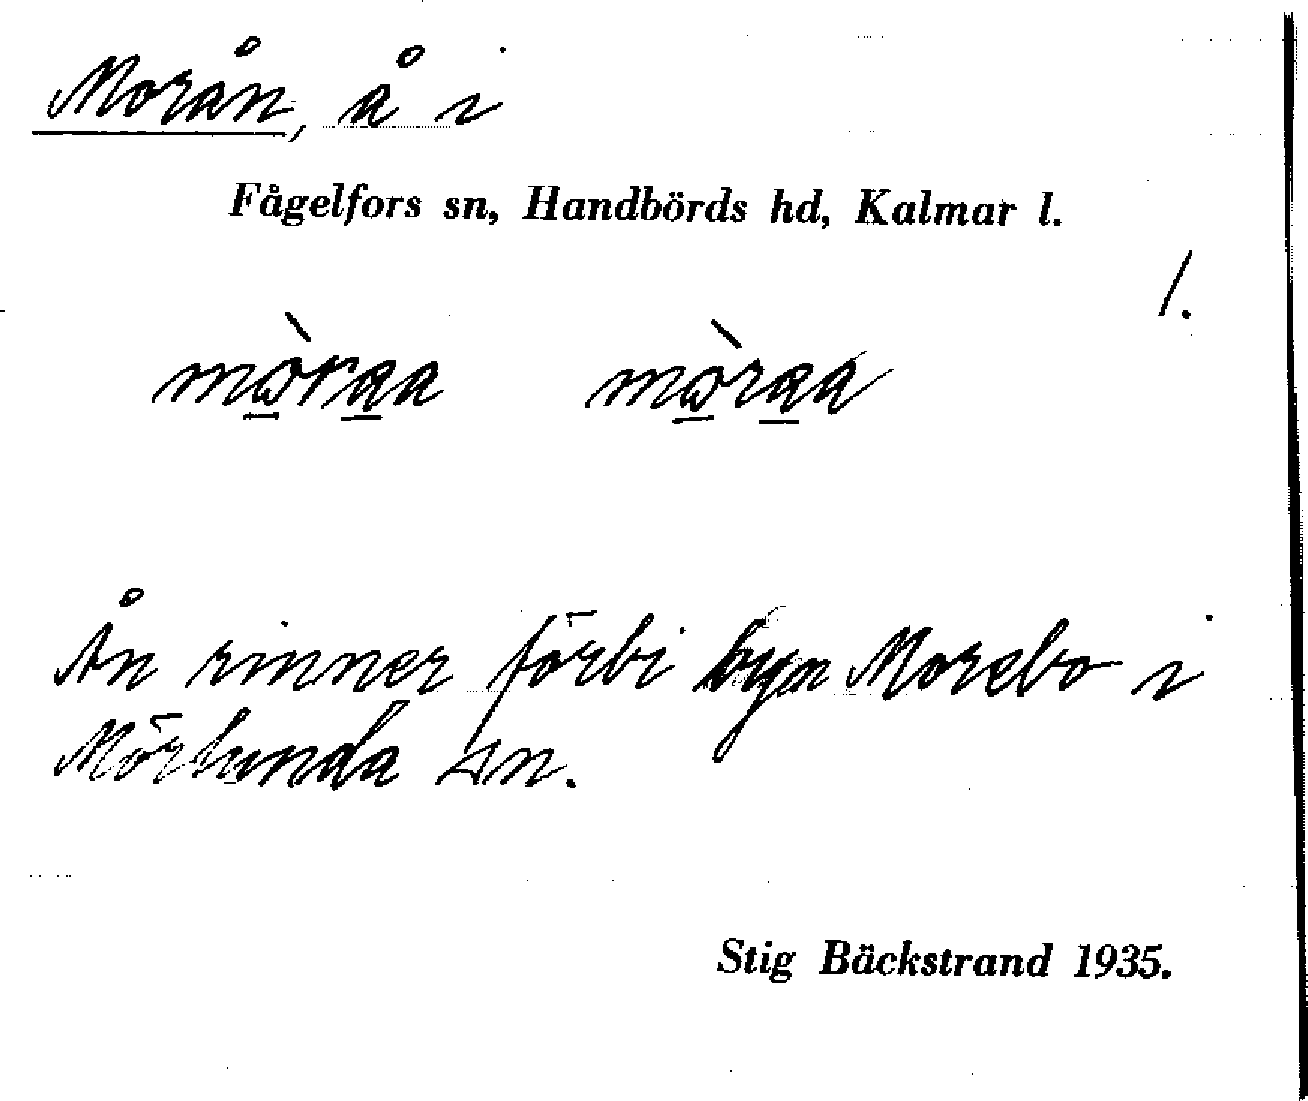 Morån, å i
Fågelfors sn, Handbörds hd, Kalmar l.
1.
mòraa mòraa
Ån rinner förbi byn Morebo i
Mörlunda sn.
Stig Bäckstrand 1935.